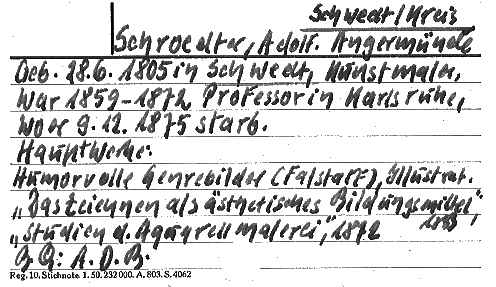 Schwedt/Kreis
Schroedter, Adolf. Angermünde
Geb. 28.6. 1805 in Schwedt, Kunstmaler,
war 1859-1872 Professor in Karlsruhe,
wo er 9.12. 1875 starb.
Hauptwerke:
Humorvolle Genrebilder (Falstaff), Illustrat.
"Das Zeichnen als ästhetisches Bildungsmittel",
"Studien d. Aquarellmalerei", 1872
B Q: A.D.B.
Reg. 10. Stichnote 1. 50. 232000. A. 803. S. 4062